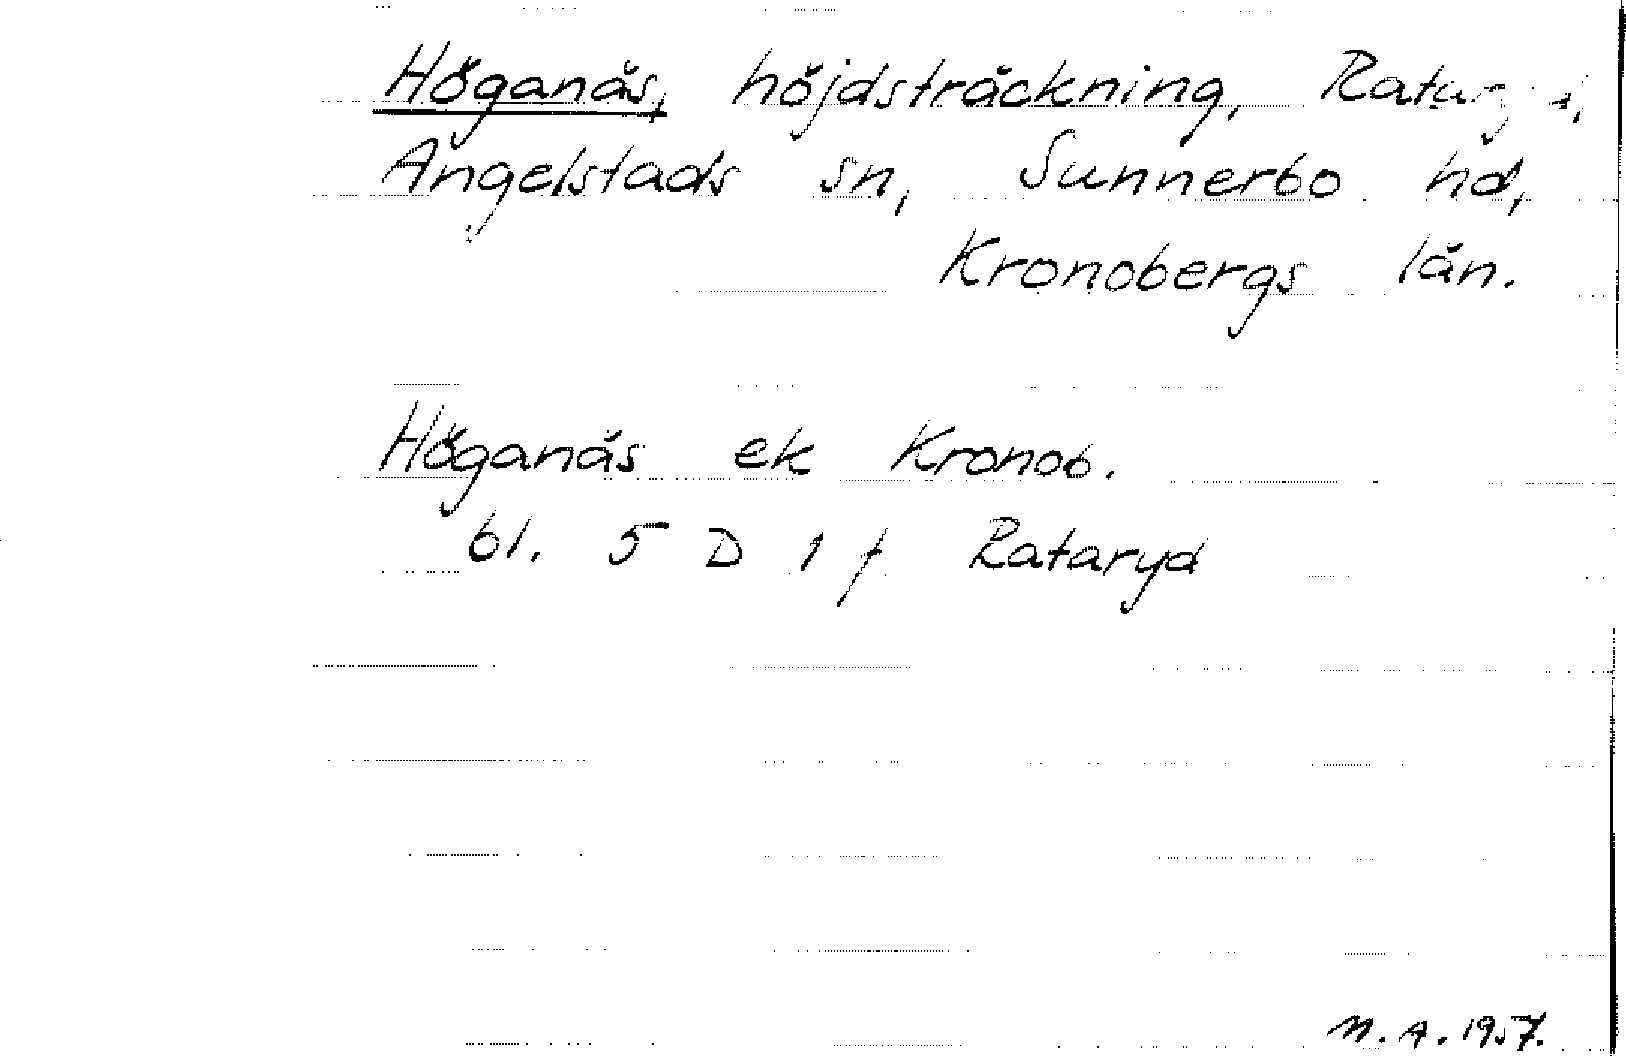 Höganäs, höjdsträckning, Rataryd,
Ångelstads sn, Sunnerbo hd,
Kronobergs län.
Höganäs ek Kronob.
bl. 5 D 1 f Rataryd
M.A. 1957.